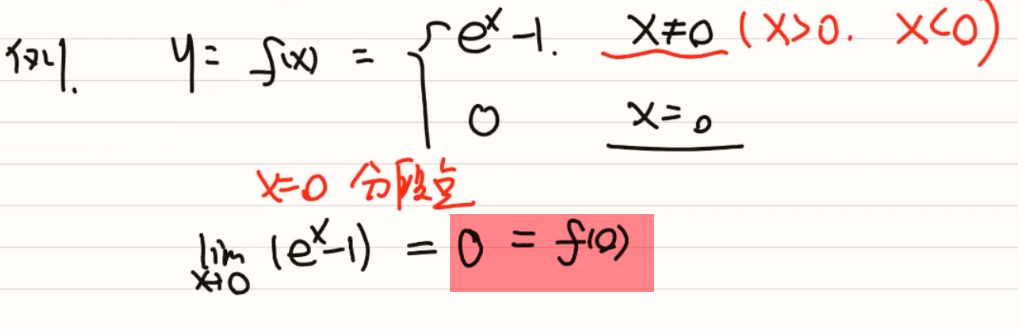 例. y = f(x) = { e^x - 1. x≠0 (x>0. x<0)
0 x=0
x=0 分段点
lim x→0 (e^x - 1) = 0 = f(0)